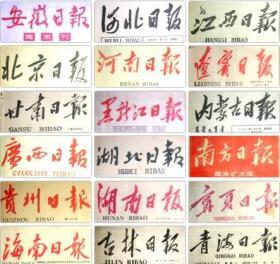 安徽日報
周末刊
河北日报
HEBEI RIBAO
江西日報
JIANGXI RIBAO
北京日報
河南日報
HENAN RIBAO
遼寧日報
LIAONING RIBAO
甘肅日報
GANSU RIBAO
黑龍江日報
内蒙古日报
廣西日報
GVANGJSIH YIZBAO
湖北日報
HUBEI RIBAO
南方日報
周末扩大版
貴州日報
GUIZHOU RIBAO
湖南日報
HUNAN RIBAO
寧夏日報
NINGXIA RIBAO
海南日報
HAINAN RIBAO
吉林日報
JILIN RIBAO
青海日報
QINGHAI RIBAO